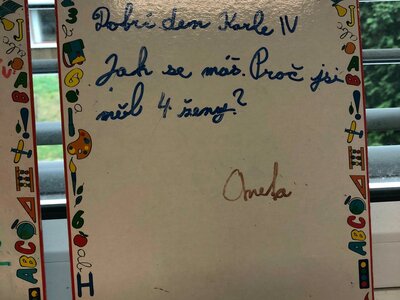 Dobrí den Karle IV
Jak se máš. Proč jsi
měl 4 šeny?